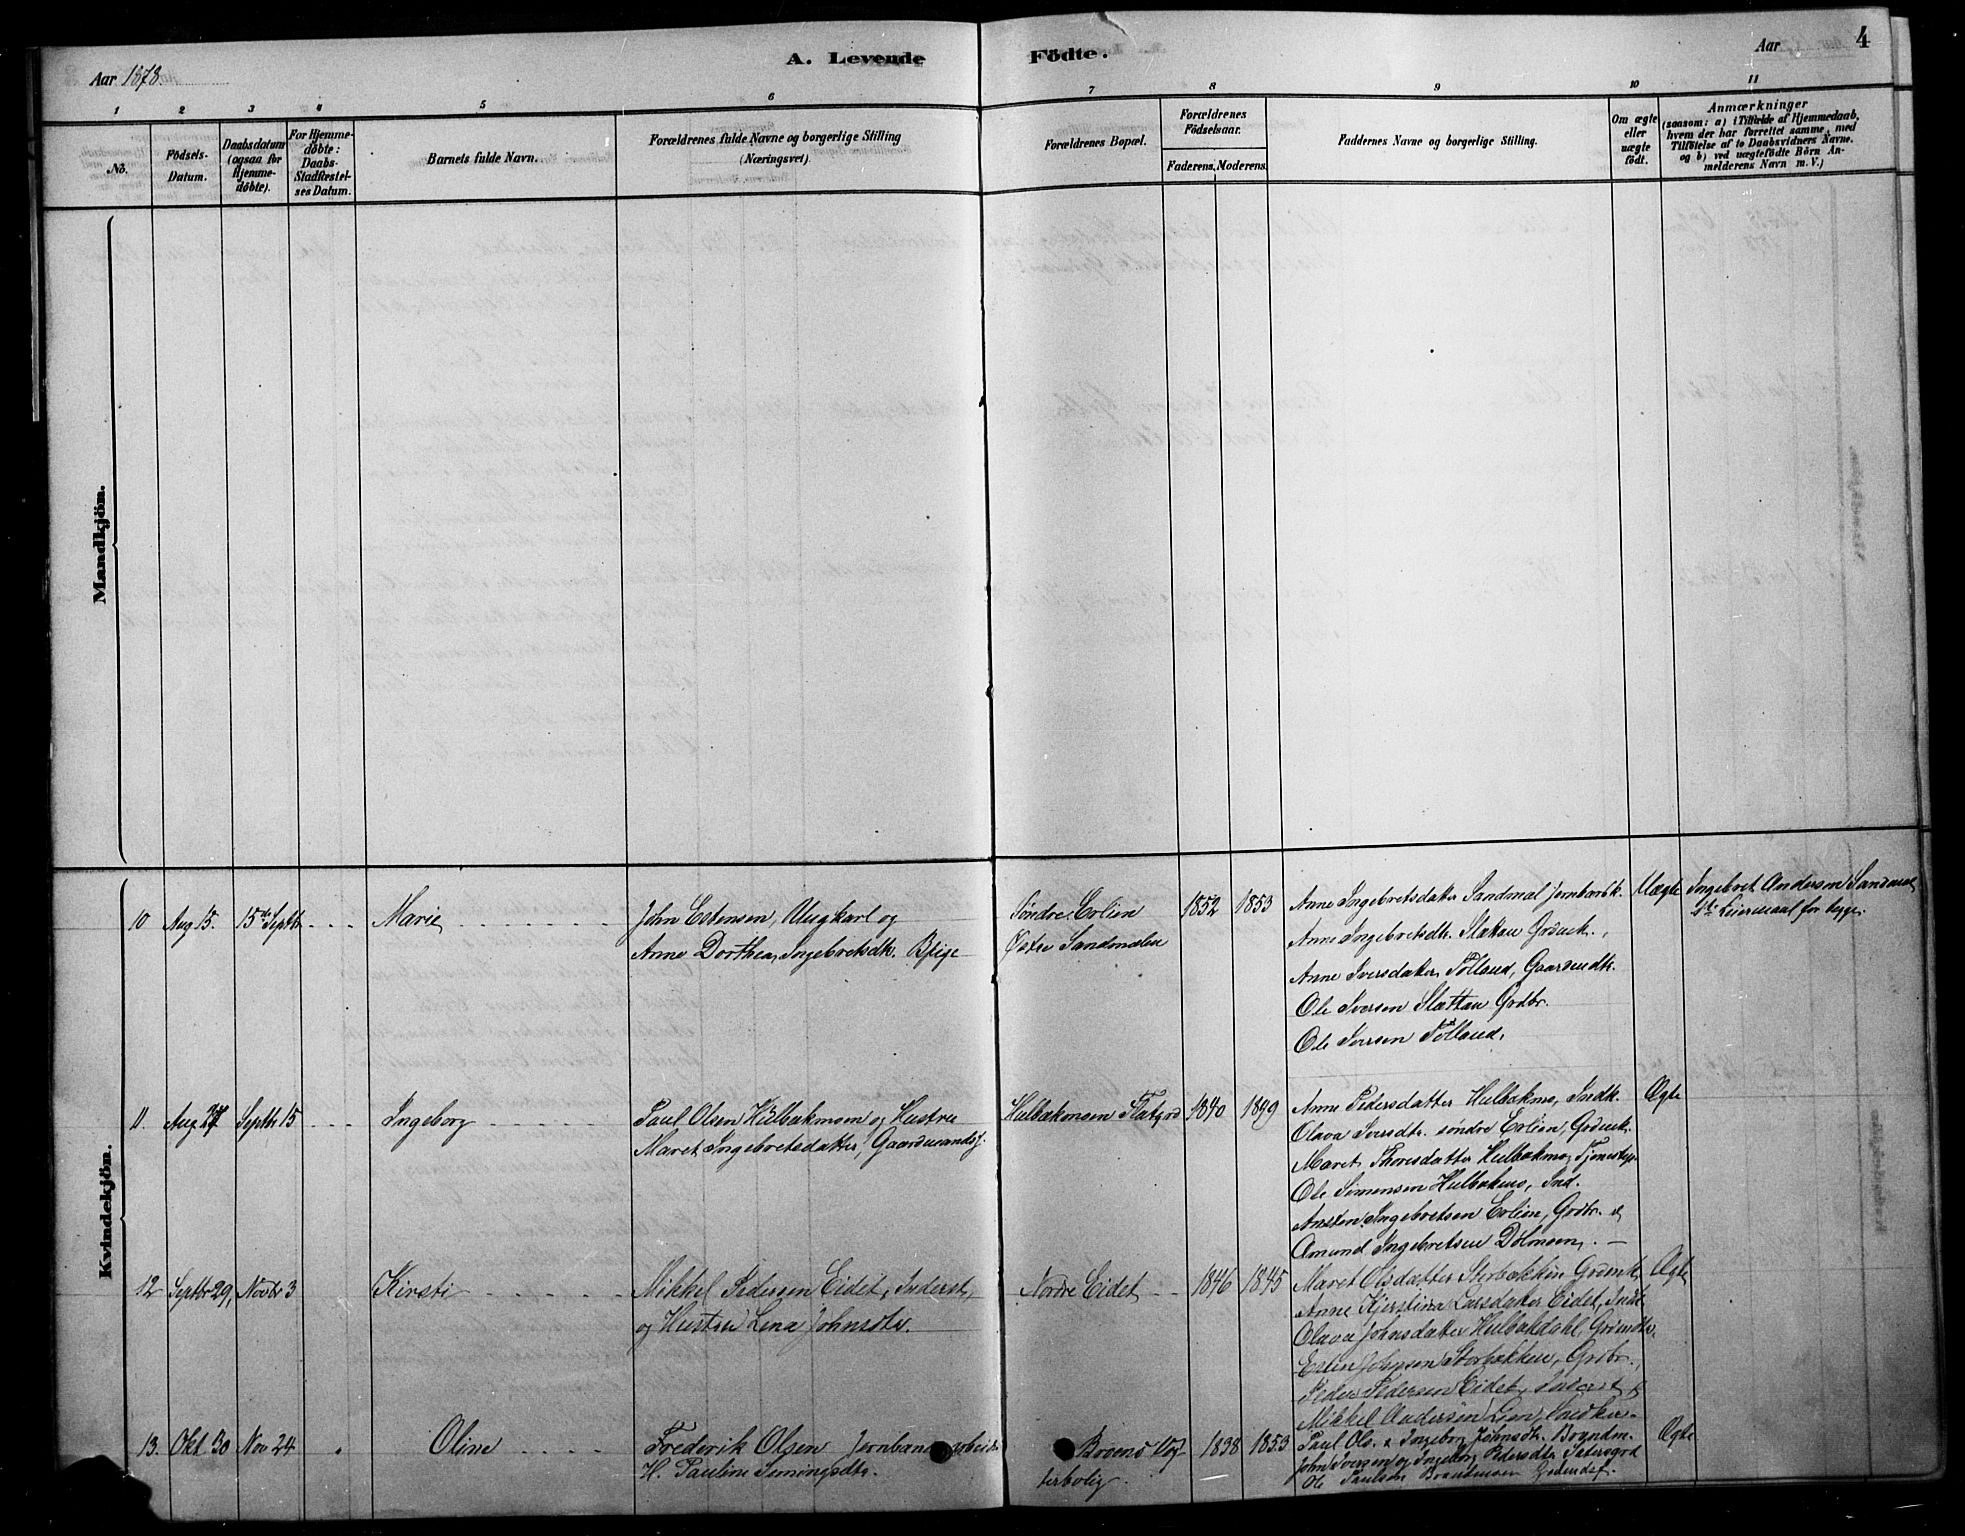 Aar 1878.
A. Levende
Födte.
Aar
4
1
2
3
4
5
6
7
8
9
10
11
No.
Födsels-
Datum.
Daabsdatum
(ogsaa for
Hjemme-
döbte).
For Hjemme-
döbte:
Daabs-
Stadfæstel-
ses Datum.
Barnets fulde Navn.
Forældrenes fulde Navne og borgerlige Stilling
(Næringsvei).
Forældrenes Bopæl.
Forældrenes
Födselsaar.
Faderens.
Moderens.
Faddernes Navne og borgerlige Stilling.
Om ægte
eller
uægte
födt.
Anmærkninger
(saasom: a) i Tilfælde af Hjemmedaab,
hvem der har forrettet samme, med
Tilföielse af to Daabsvidners Navne.
og b) ved uægtefödte Börn An-
melderens Navn m. V.)
Mandkjön.
Kvindekjön.
10
Aug 15.
15de Septbr
Marie
John Estensen, Ungkarl og
Anne Dorthea Ingebretsdtr. Pige
Søndre Erlien
Østre Sandmælen
1852
1853
Anne Ingebretsdatter Sandmæl
Anne Ingebretsdtr. Slættau Grdmk.,
Anne Iversdatter Tølland, Gaardmdtr.
Ole Iversen Slættau Grdbr.
Ole Iversen Tølland,
Uægte
Ingebret Andersen Sandmæl
1ste Leiermaal for begge.
11.
Aug 27
Septbr 15
Ingeborg
Paul Olsen Hulbakmoen og Hustru
Maret Ingebretsdatter, Gaardmandsf.
Hulbakmoen
1840
1849
Anne Pedersdatter Hulbakmo, Indk.
Olava Iversdtr. søndre Erlien, Grdmk.
Maret Thoresdatter Hulbakmo,
Ole Simensen Hulbakmo, Ind.
Amsten Ingebretsen Erlien, Grdbr. &
Amund Ingebretsen Dølmoen. —
Ægte
12
Septbr 29,
Novbr 3
Kirsti
Mikkel Pedersen Eidet, Inderst,
og Hustru Lena Johnsdtr.
Nordre Eidet
1846
1845
Maret Olsdatter Storbækken Grdmk,
Anne Kjerstina Larsdatter Eidet, Indk.
Olava Johnsdatter Hulbakdahl, Grdmdtr.
Esten Johnsen Storbækken, Grdbr.,
Peder Pedersen Eidet, Inderst &
Mikkel Andersen Lien, Snedker.
Ægte
13.
Okt 30
Nov 24
Oline
Frederik Olsen Jernbanearbeider
H. Pauline Simingsdtr.
Broens Vog-
terbolig.
1838
1853
Paul Ols. & Ingeborg Johnsdtr. Brændm.
John Iversen og Ingeborg Pedersdtr
Ole Paulsen Brændmoen
Ægte